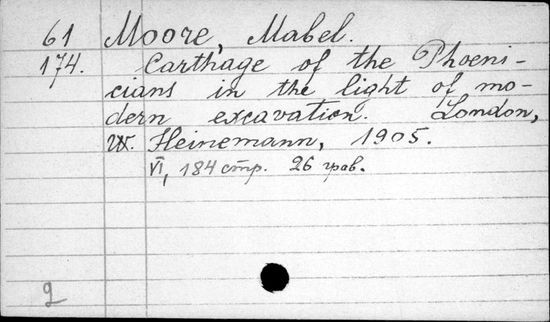 61 Moore, Mabel.
174. Carthage of the Phoeni-
cians in the light of mo-
dern excavation. London,
W. Heinemann, 1905.
VI, 184 стр. 26 грав.
2